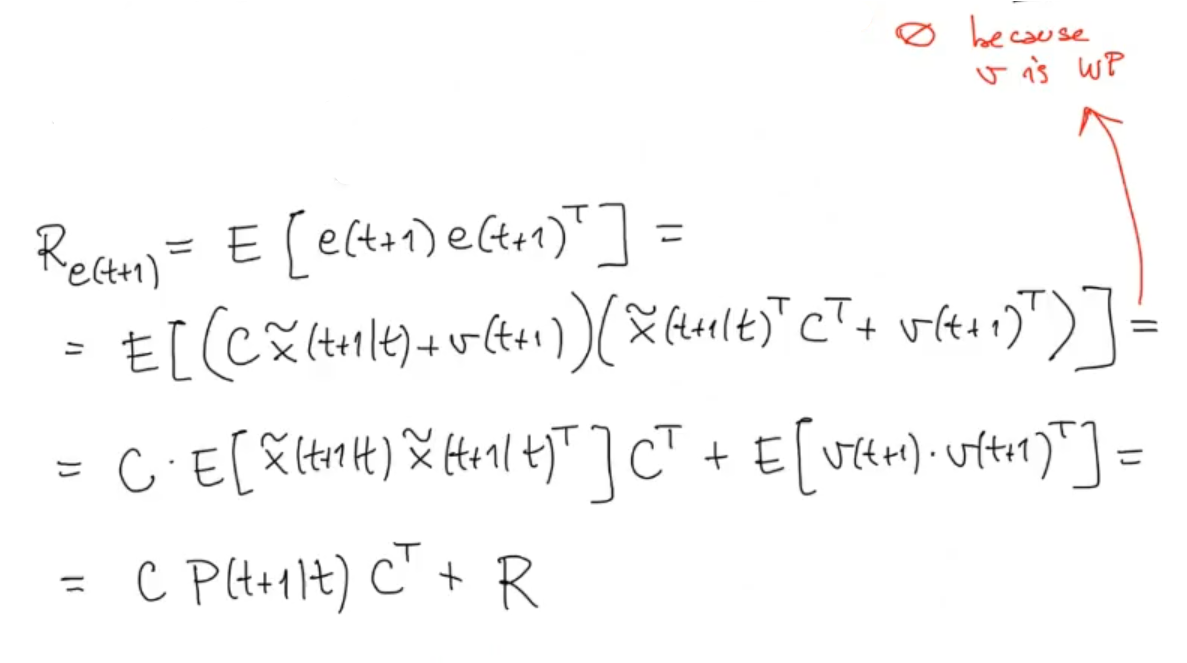 ∅ because
v is WP
R_{e(t+1)} = E [ e(t+1) e(t+1)^T ] =
= E [ ( C x̃(t+1|t) + v(t+1) ) ( x̃(t+1|t)^T C^T + v(t+1)^T ) ] =
= C · E [ x̃(t+1|t) x̃(t+1|t)^T ] C^T + E [ v(t+1) · v(t+1)^T ] =
= C P(t+1|t) C^T + R